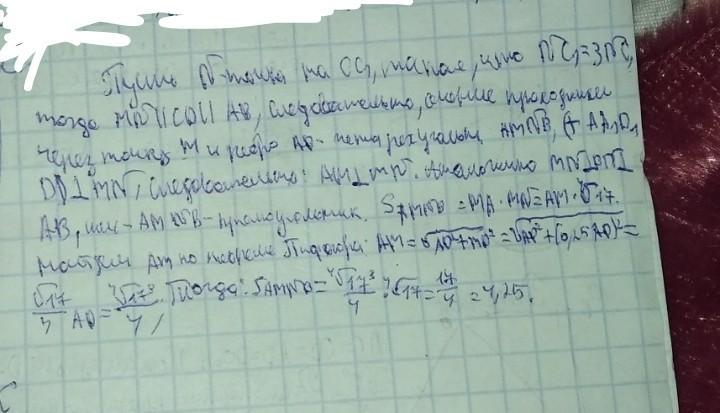 Пусть N-точка на CC₁, такая, что NC₁=3NC,
тогда MN||CD||AB, следовательно, сечение проходящее
через точку M и ребро AB- четырехугольник AMNB, (т AA₁D₁
D)⊥MN, следовательно: AM⊥MN. Аналогично MN⊥BN⊥
AB, -AMNB-прямоугольник. S_AMNB =MA·MN=AM·⁴√17.
Найдем AM по теореме Пифагора: AM=√AD²+MD²=√AD²+(0,25AD)²=
√17/4 AD=⁴√17³/4, Тогда: S_AMNB=⁴√17³/4·⁴√17=17/4=4,25.